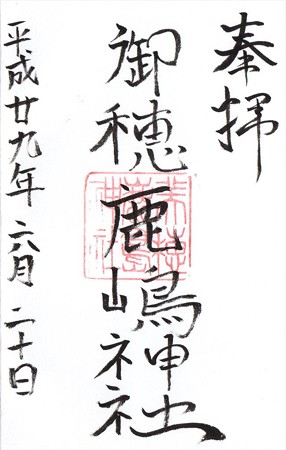 奉拝
御穂鹿嶋神社
平成廿九年六月二十日